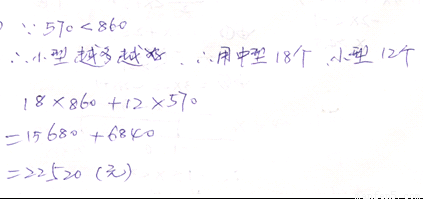 ∵ 570 < 860
∴ 小型越多越好 ∴ 用中型 18个 小型 12个
18 × 860 + 12 × 570
= 15680 + 6840
= 22520 (元)